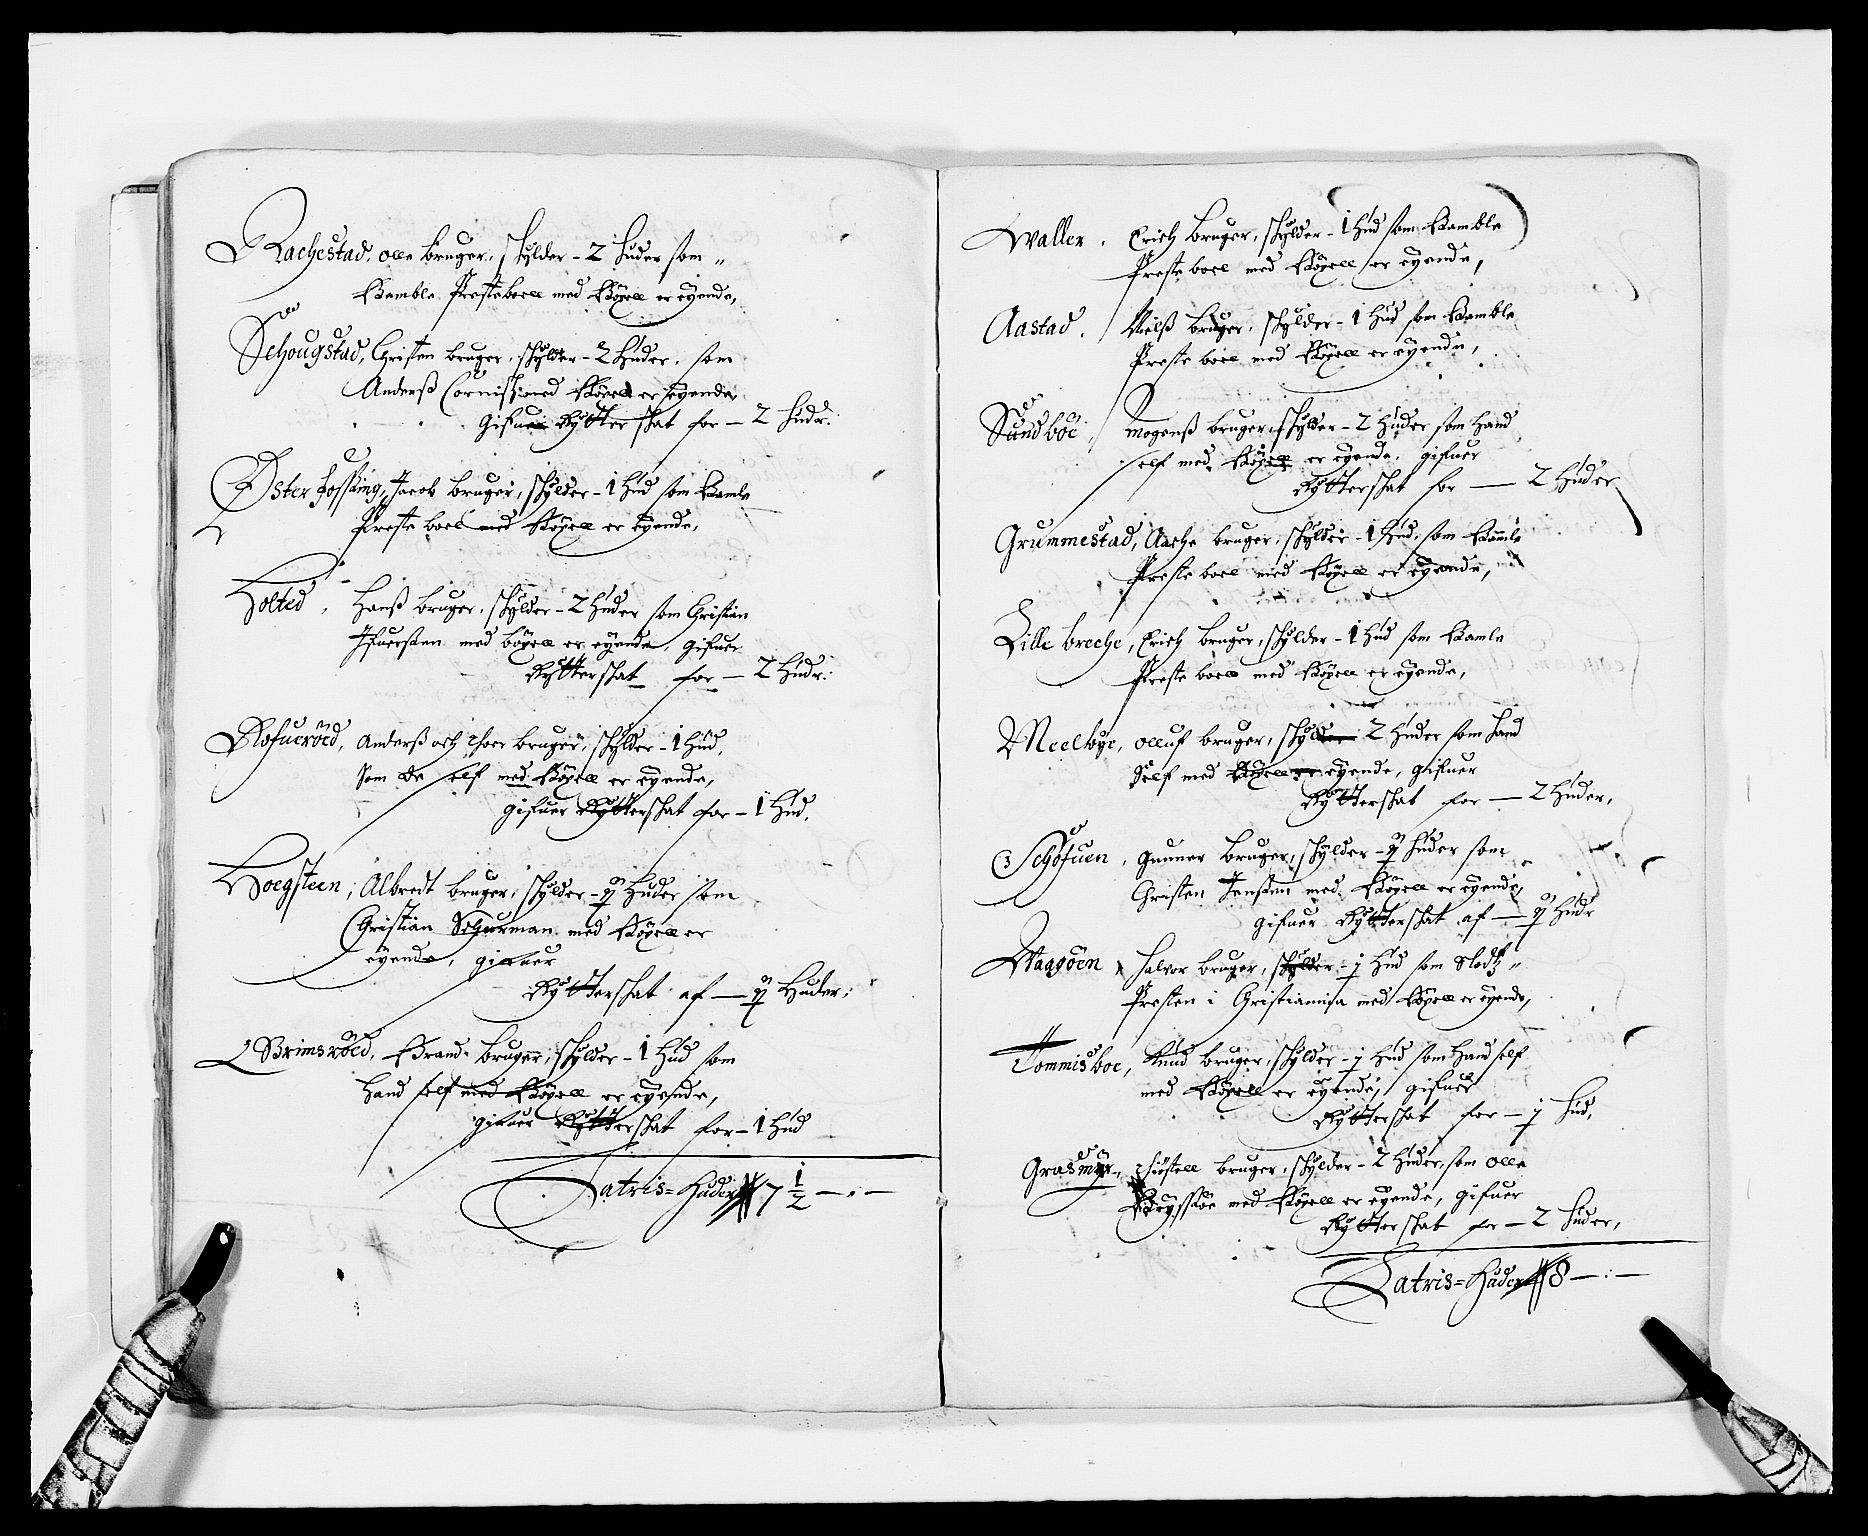 Rachestad, olle bruger, schylder - 2 huder som
Bamble Presteboell med Böxell er eyende,
Schougstad, Christen bruger, schylder - 2 Huder, som
Anderß Cornisß med Böxell er eyende
gifuer Rÿtterschat for - 2 hudr:
Øster Jossing, Jacob bruger, schylder - 1 Hud som Bamle
Preste boel med Böxell er eyende,
Holted, Hanß bruger, schylder - 2 huder som Christian
Ifuersen med böxell er eyende, gifuer
Rÿtterschat for - 2 Hudr:
Rofueröed, Anderß och Iver bruger, schylder - 1 Hud,
Som de self med Böxell er eyende,
gifuer Rÿtterschat for - 1 Hud,
Hoegsteen, Albredt bruger, schylder - Huder som
Christian Schurman med Böxell er
eyende, gifuer
Rÿtterschat af - Huder:
Brimsröed, Brand bruger, schylder - 1 Hud som
Hand self med Böxell er eyende,
gifuer Rÿtterschat for - 1 Hud
Latris = Huder 7 1/2 - : -
Waller, Erich bruger, schylder - 1 Hud som Bamble
Preste boel med Böxell er eyende,
Aastad, Nielß bruger, schylder - 1 Hud som Bamble
Preste boel med Böxell er eyende,
Sundboe, Mogenß bruger, schylder - 2 Huder som Hand
self med Böxell er eyende, gifuer
Rÿtterschat for - 2 Huder
Grummestad, Aache bruger, schylder - 1 Hud, som Bamle
Preste boel med Böxell er eyende,
Lille breche, Erich bruger, schylder - 1 Hud som Bamle
Preste boel med Böxell er eyende,
Meelbye, olluf bruger, schylder 2 Huder som Hand
Self med Böxell er eyende, gifuer
Rÿtterschat for - 2 Huder,
Schofuen, Gunner bruger, schylder - Huder som
Christen Jensen med Böxell er eyende,
gifuer Rÿtterschat af - Hudr
Waagöen, Halvor bruger, schylder - Hud som Slodtz
Presten i Christiania med Böxell er eyende,
Tommisboe, Knud bruger, schylder - Hud som Hand self
med Böxell er eyende, gifuer
Rÿtterschat for - Hud,
Grasmÿr, bruger, schylder - 2 Huder, som olle
med Böxell er eyende, gifuer
Rÿtterschat for - 2 Huder,
Latris = Huder 8 - : -